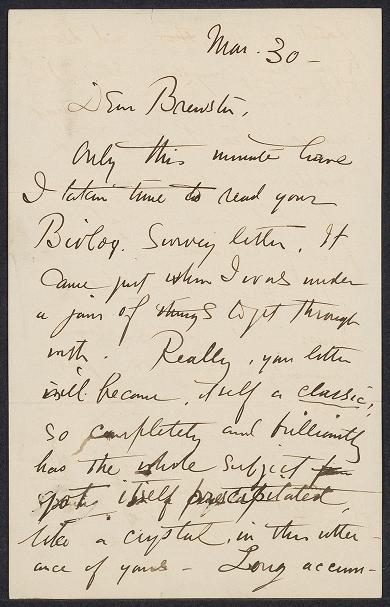 Mar. 30 –
Dear Brewster,
Only this minute have
I taken time to read your
Biolog. Survey letter. It
came just when I was under
a jam of things to get through
with. Really, your letter
will become, itself a classic,
so completely and brilliantly
has the whole subject
got itself precipitated,
like a crystal, in this utter-
ance of yours – Long accum-